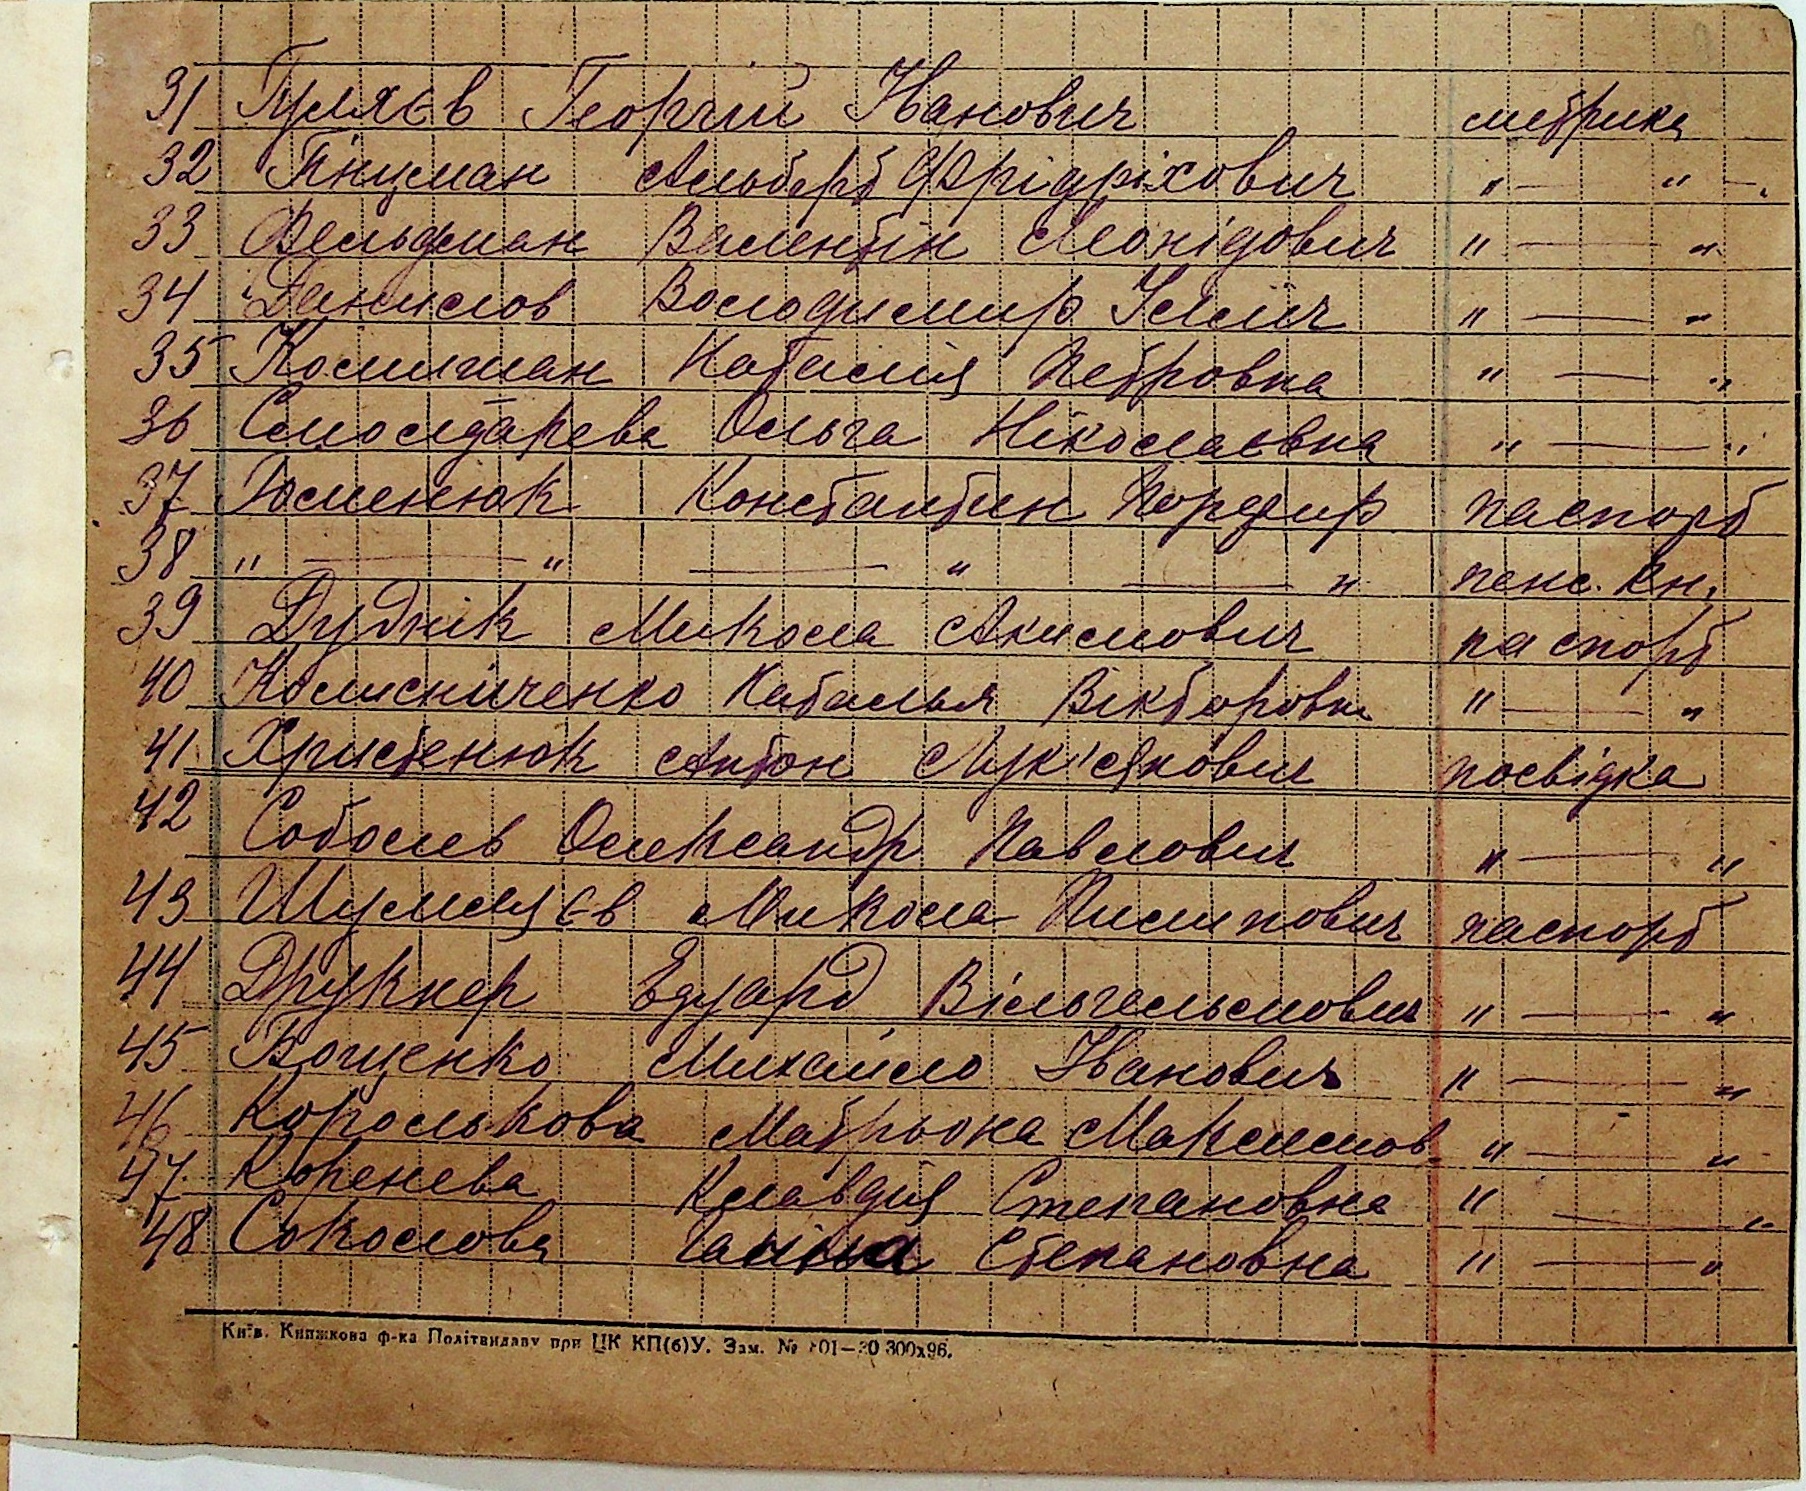 31 Гуляєв Георгій Іванович метрика
32 Гінцман Альберт Фрідріхович " — " —.
33 Фельдман Валентін Леонідович " — "
34 Данилов Володимир Ілліч " — "
35 Колиман Наталія Петровна " — "
36 Слюсарева Ольга Ніколаєвна " — "
37 Гоменюк Константин Порфир паспорт
38 " — " — " — " пенс. кн.
39 Дуднік Микола Акимович паспорт
40 Колисниченко Наталья Вікторовна " — "
41 Христенюк Антон Лук'янович посвідка
42 Соболев Олександр Павлович " — "
43 Шумляєв Микола Пилипович паспорт
44 Друкнер Едуард Вільгельмович " — "
45 Вощенко Михайло Іванович " — "
46 Королькова Матрьона Максимов " — "
47 Коренева Клавдія Степановна " — "
48 Соколова Ганна Степановна " — "
Київ. Книжкова ф-ка Політвидаву при ЦК КП(б)У. Зам. № 101—20 300х96.